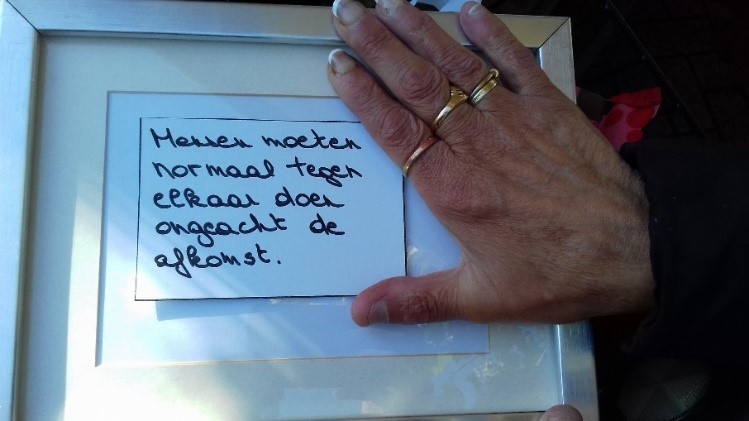 Mensen moeten
normaal tegen
elkaar doen
ongeacht de
afkomst.